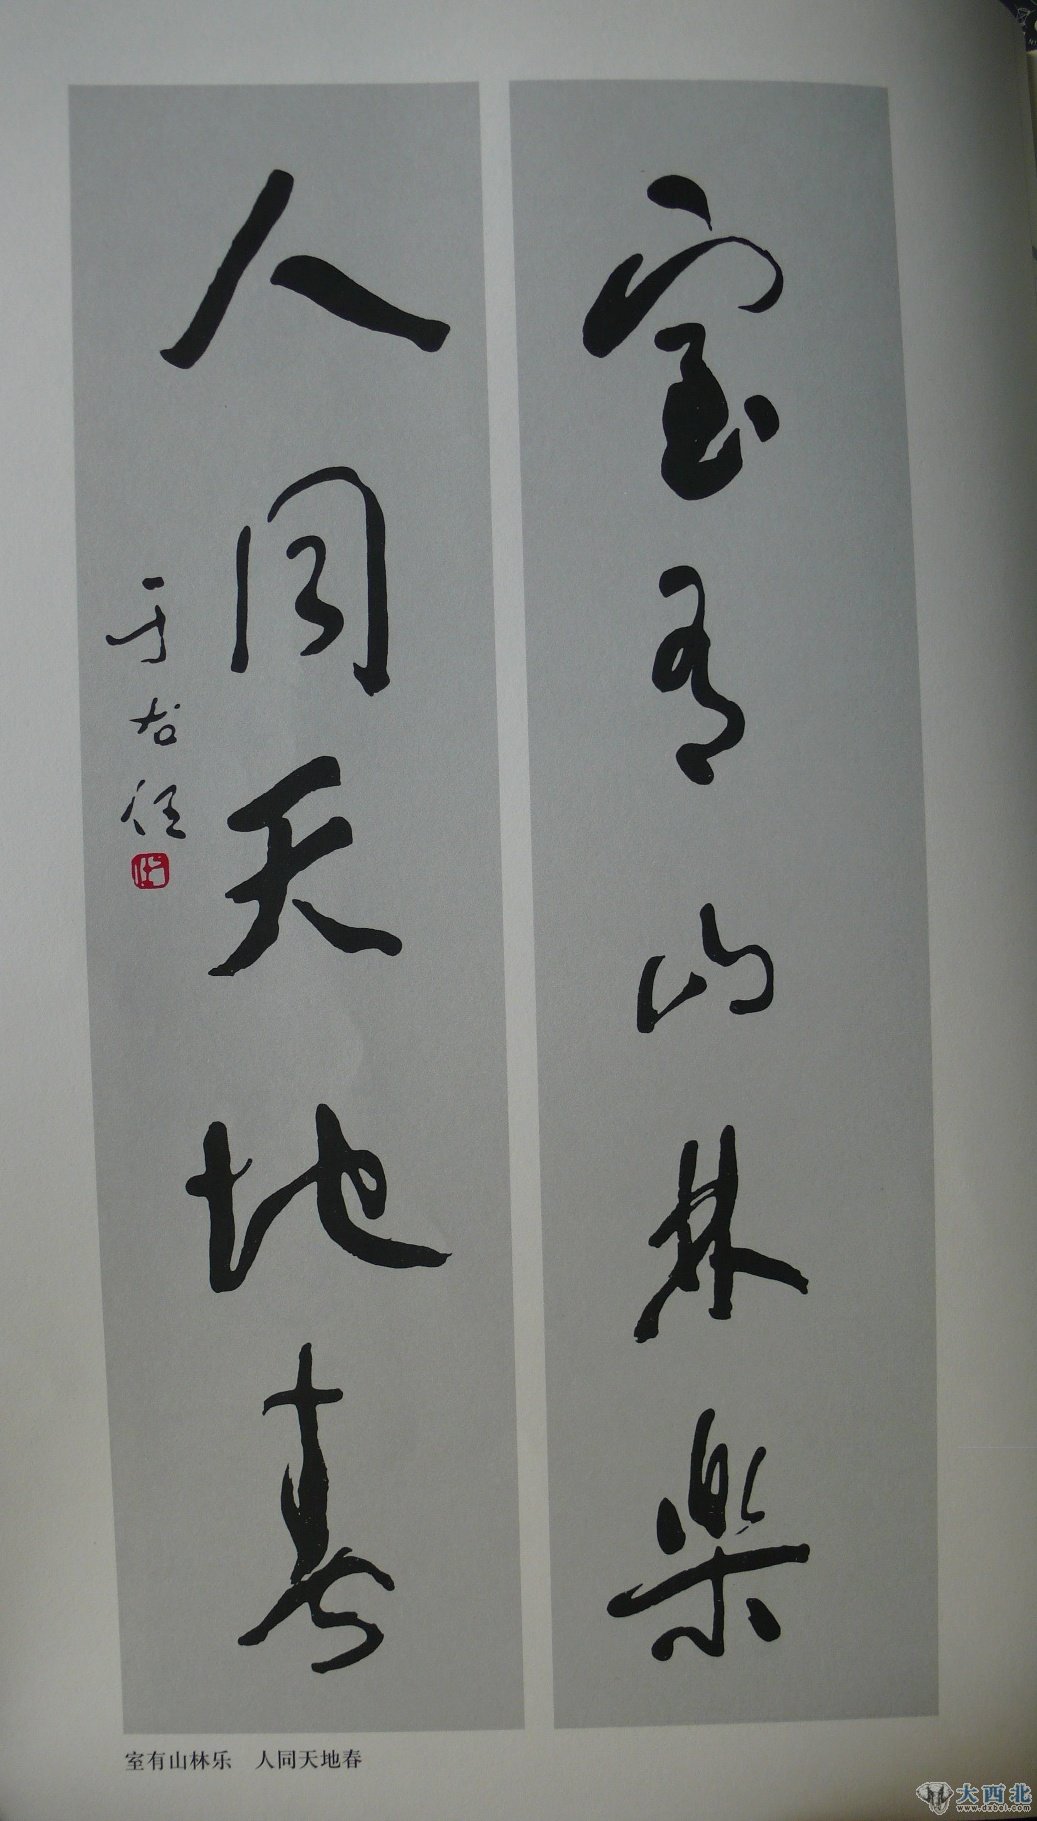 室有山林樂
人同天地春
于右任
室有山林乐 人同天地春
大西北
www.dxbei.com